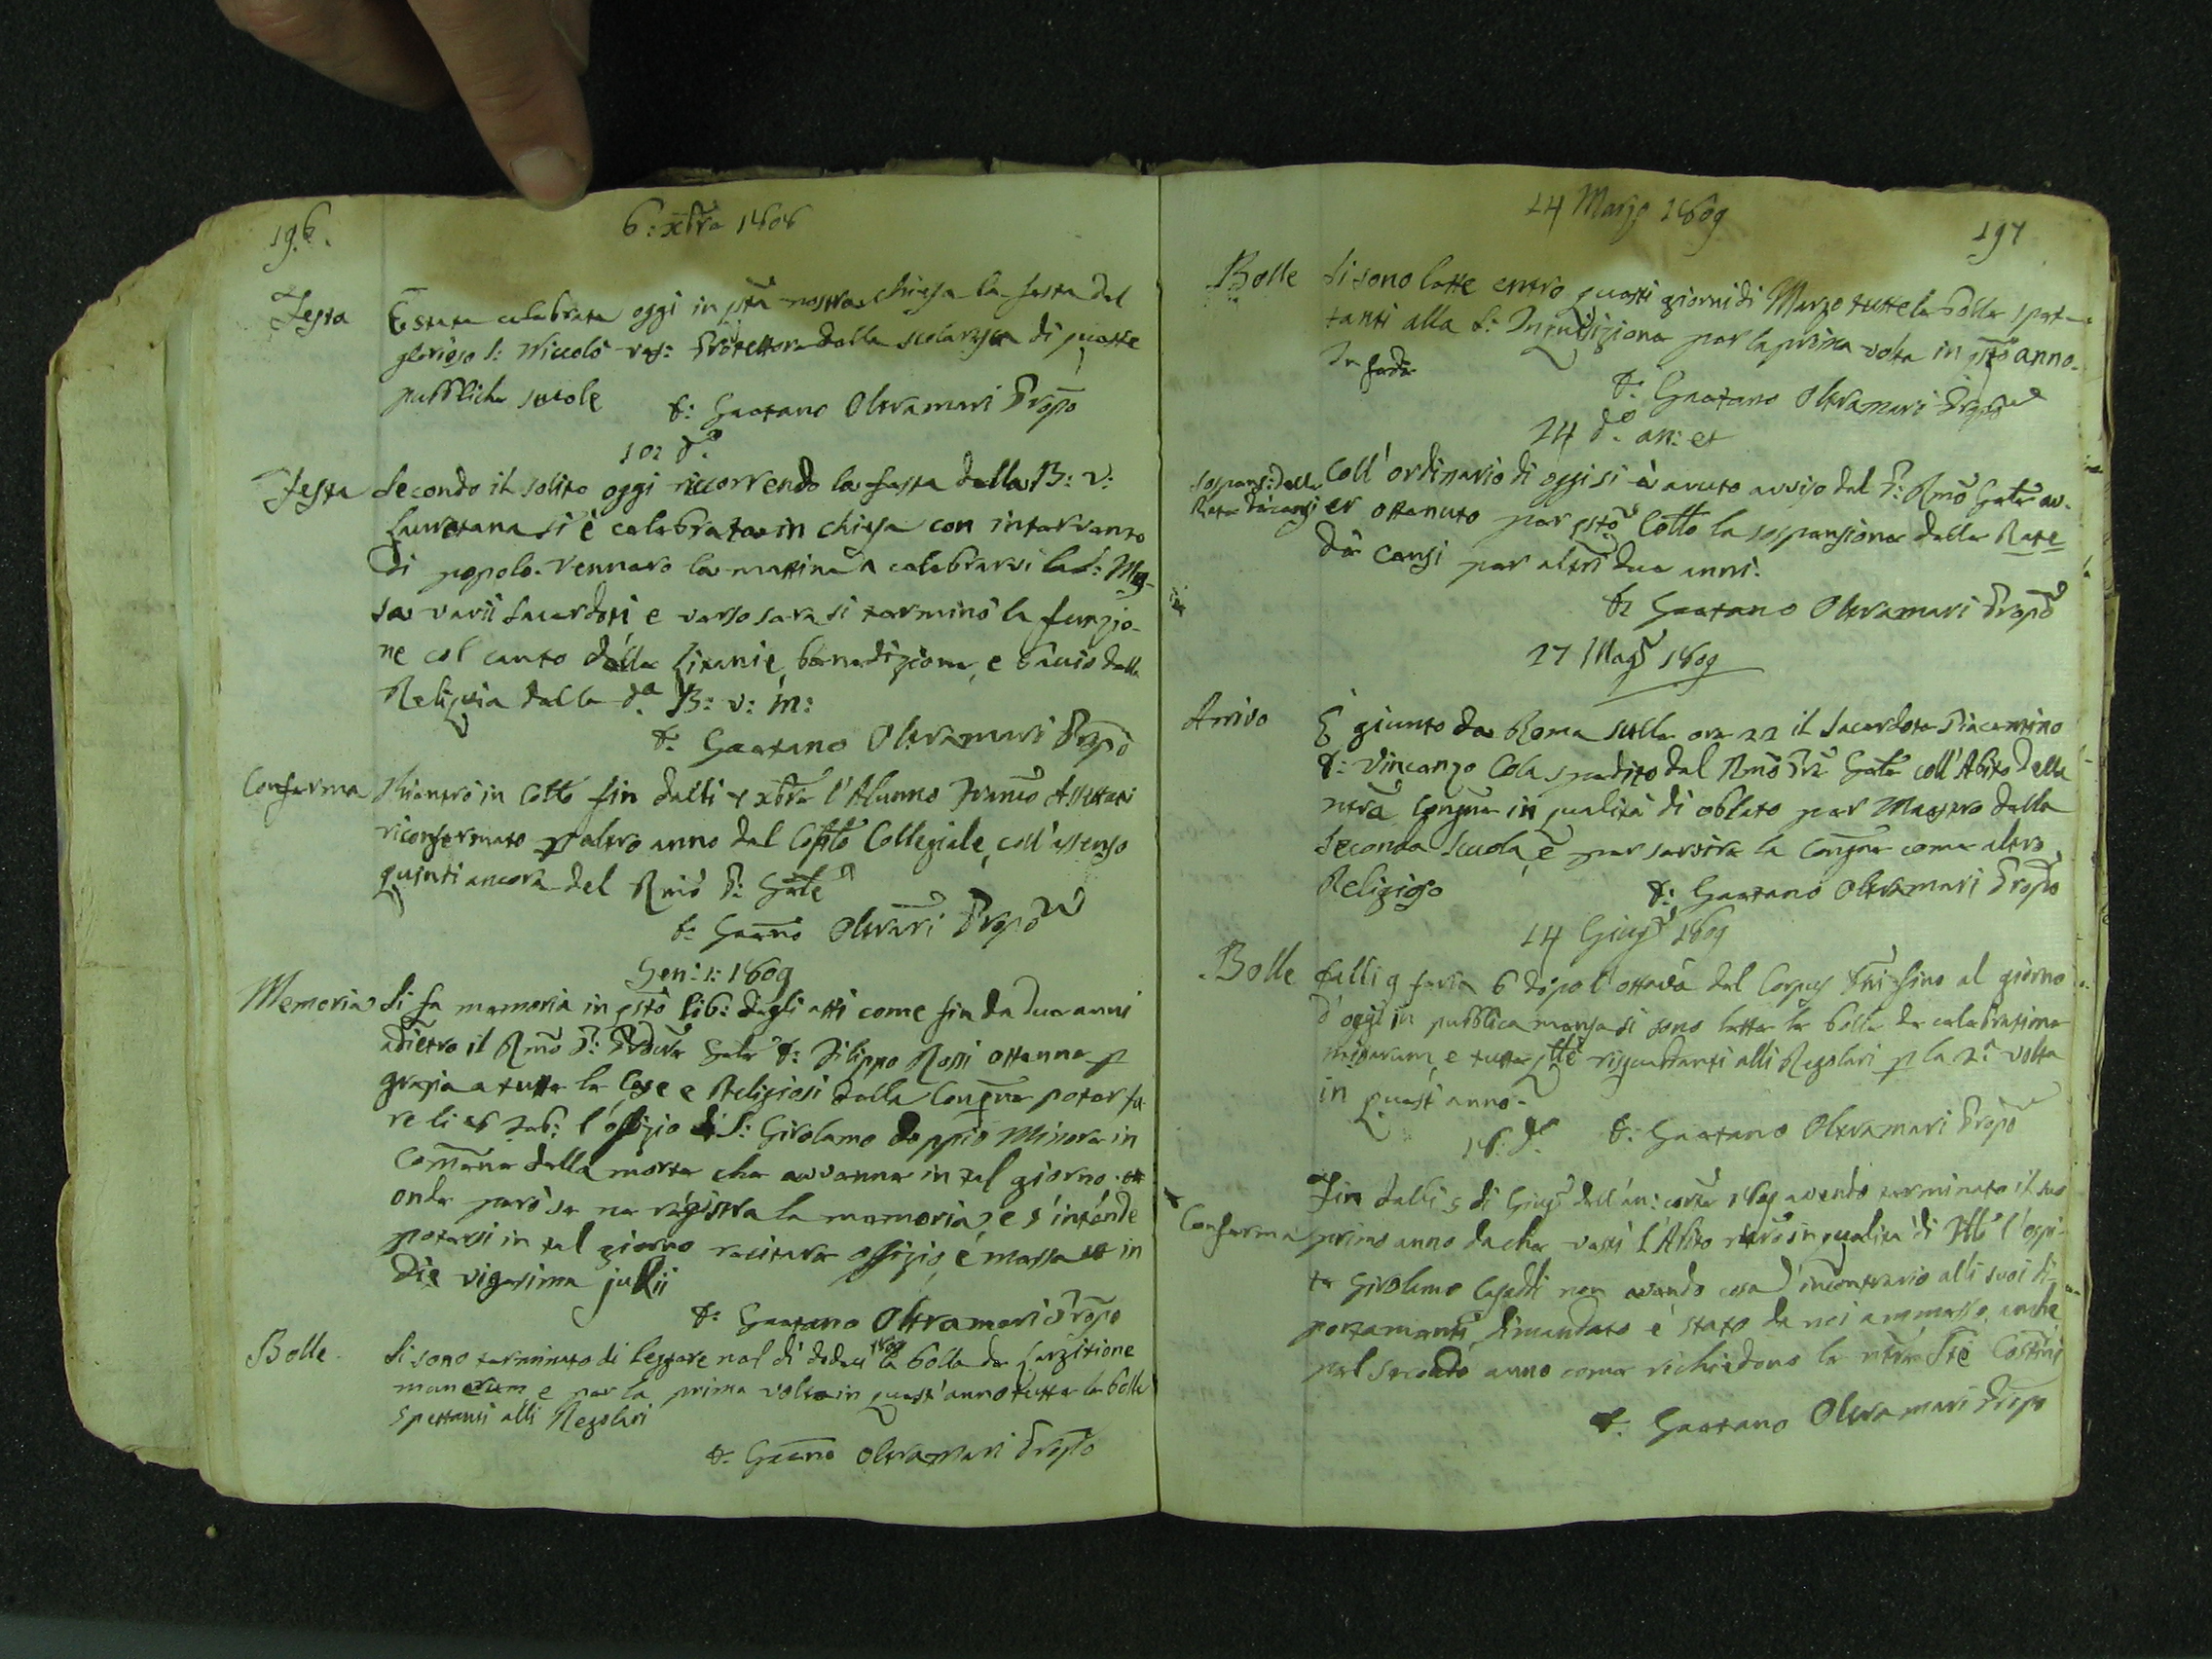 196.
6: xbre 1808
Festa
È stata celebrata oggi in qsta nostra chiesa la festa del
glorioso S: Niccolò vesc: Protettore della scolaresca di queste
pubbliche scuole
D: Gaetano Oltremari Propo
10: do
Festa
Secondo il solito oggi ricorrendo la festa della B: V:
Lauretana si è celebrata in chiesa con intervento
di popolo. Vennero la mattina a celebrarvi la S: Mes-
sa varii Sacerdoti e verso sera si terminò la funzio-
ne col canto delle Litanie, benedizione, e bacio della
Reliquia della da B: V: M:
D: Gaetano Oltremari Propo
Conferma
Rientrò in Collo fin dalli xbre l'Alunno Franco
riconfermato p altro anno dal Caplo Collegiale, coll'assenso
quindi ancora del Rmo P: Gnle
D: Gaeno Oltrari Propo
Gen: 1: 1809
Memoria
Si fa memoria in qsto lib: degli atti come fin da due anni
adietro il Rmo P: Gnle D: Filippo Rossi ottenne p
grazia a tutte le Case e Religiosi della Congne poter fa-
re li 8 Feb: l'offizio di S: Girolamo doppio Minore in
Comne della morte che avvenne in tal giorno.
onde però se ne registra la memoria, e s'intende
potersi in tal giorno recitare offizio, e messa in
die vigesima julii
D: Gaetano Oltremari Propo
Bolle
Si sono terminato di leggere nel dì dodici 1809 la bolla de largitione
munerum e per la prima volta in quest'anno tutte le bolle
spettanti alli Regolari
D: Gaeno Oltremari Propo
24 Marzo 1809
197
Bolle
Si sono lette entro questi giorni di Marzo tutte le bolle spet-
tanti alla S: Inquisizione per la prima volta in qsto anno.
In fede
D: Gaetano Oltremari Propo
24 do an: et
Sospens: delle
Rate de censi
Coll'ordinario di oggi si è avuto avviso dal P: Rmo Gnle av-
er ottenuto per qsto Collo la sospensione delle Rate
de Censi per altri due anni.
D: Gaetano Oltremari Propo
27 Mago 1809
Arrivo
È giunto da Roma sulle ore 22 il Sacerdote Piacentino
D: Vincenzo Cola spedito dal Rmo Pre Gnle coll'Abito della
ntra Congne in qualità di oblato per Maestro della
Seconda Scuola, e per servire la Congne come altro
Religioso
D: Gaetano Oltremari Propo
14 Giugo 1809
Bolle
Dalli 9 feria 6 dopo l'ottava del Corpus Dni sino al giorno
d'oggi in pubblica mensa si sono lette le bolle de celebratione
missarum, e tutte qlle risguardanti alli Regolari p la 2a volta
in quest'anno.
D: Gaetano Oltremari Propo
18: do
Conferma
Fin dalli 5 di Giugo dell'an: corte 1809 avendo terminato il suo
primo anno dache vestì l'Abito ntro in qualità di l'ospi-
te Girolamo non avendo cosa d'incontrario alli suoi di-
portamenti, dimandato è stato da noi ammesso anche
pel secondo anno come richiedono le ntre Ste Costni
D: Gaetano Oltremari Propo